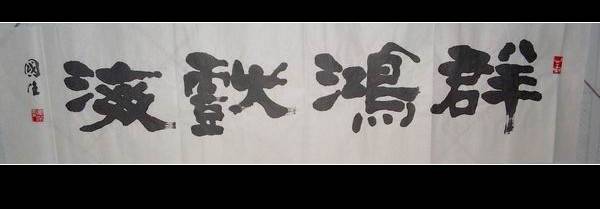 群鴻戲海
國生